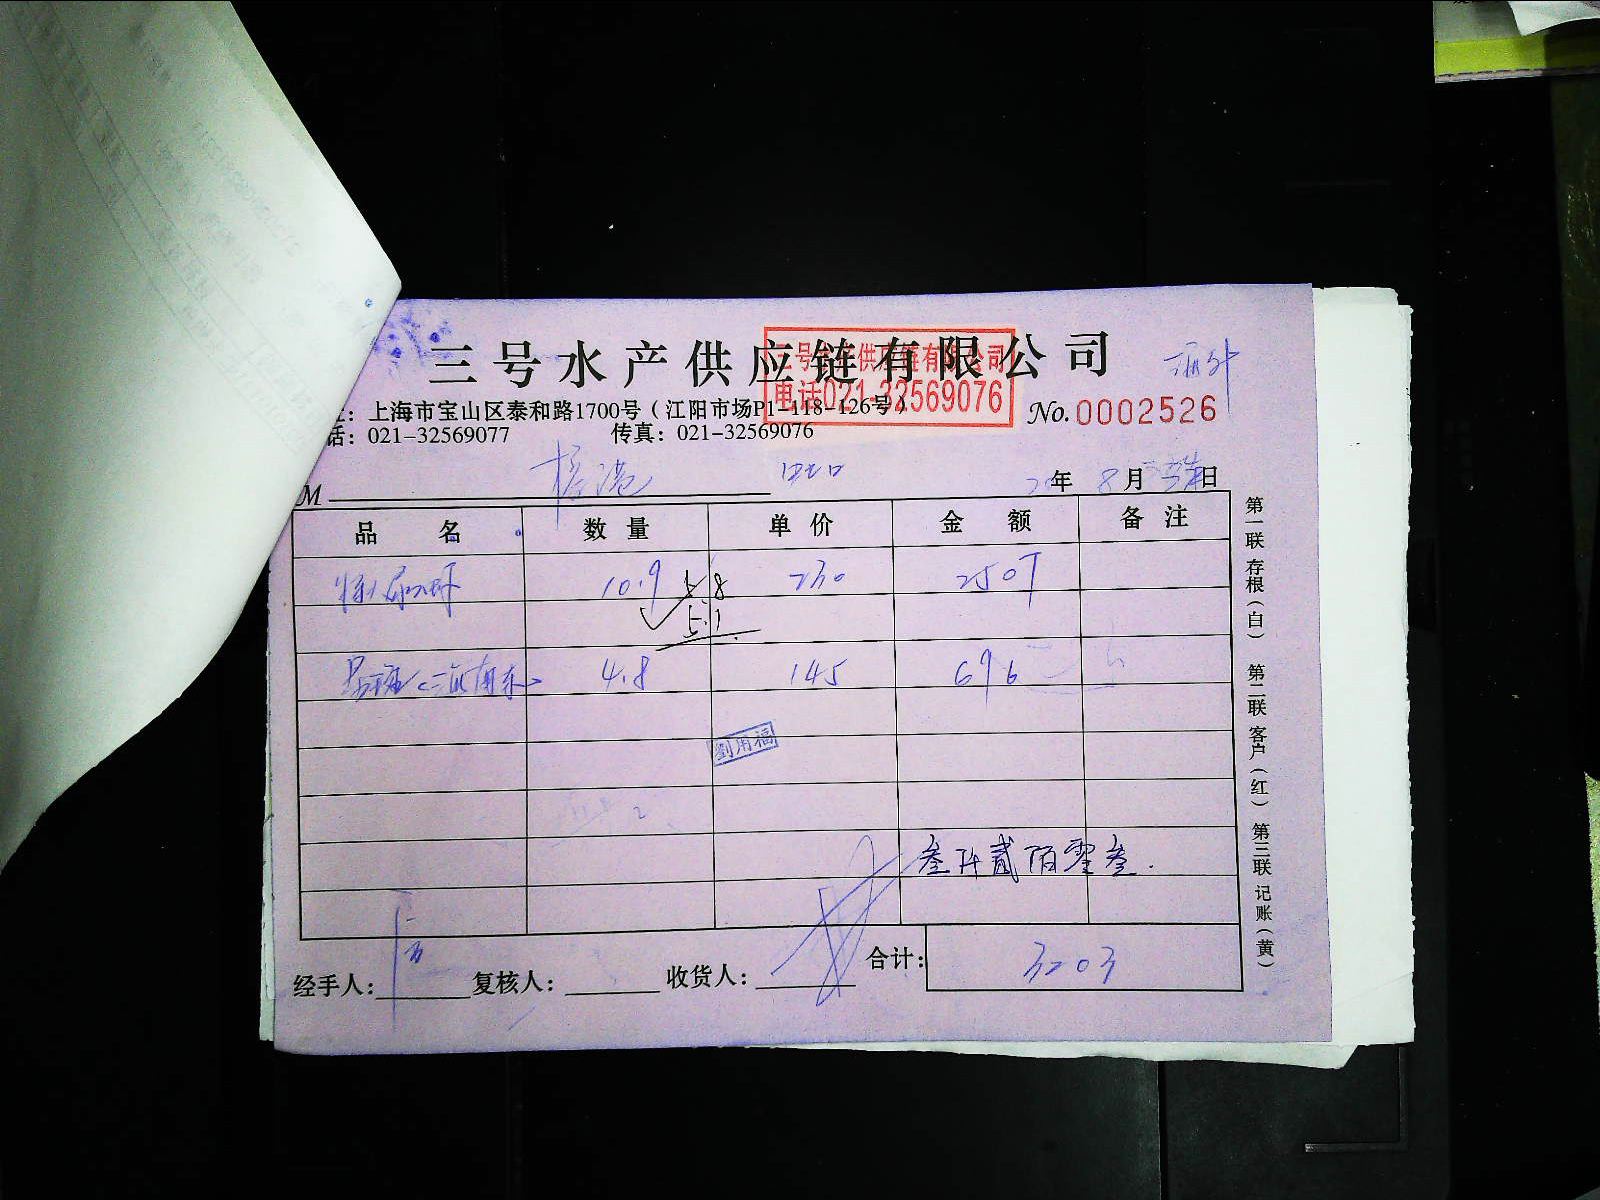 三号水产供应链有限公司
三号水产供应链有限公司
电话021-32569076
海外
址：上海市宝山区泰和路1700号（江阳市场P1-118-126号）
No.0002526
话：021-32569077 传真：021-32569076
M 年 8月 日
品名 数量 单价 金额 备注
10.9 5.8 230 2507
5.1
4.8 145 696
劉用福
叁仟贰佰零叁.
合计：3203
经手人： 复核人： 收货人：
第一联 存根（白） 第二联 客户（红） 第三联 记账（黄）